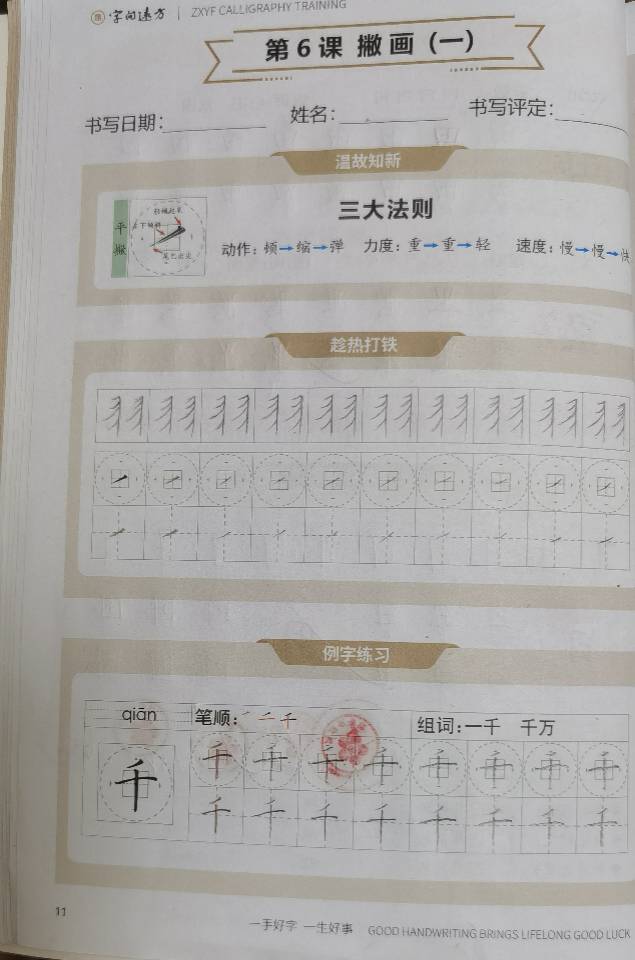 字向远方 | ZXYF CALLIGRAPHY TRAINING
第6课 撇画（一）
书写日期： 姓名： 书写评定：
温故知新
三大法则
平撇
尾巴出尖
动作：顿→缩→弹 力度：重→重→轻 速度：慢→慢→快
趁热打铁
例字练习
qiān 笔顺：一 二 千 组词：一千 千万
千 千 千 千 千 千 千 千 千
千 千 千 千 千 千 千 千
11
一手好字 一生好事 GOOD HANDWRITING BRINGS LIFELONG GOOD LUCK